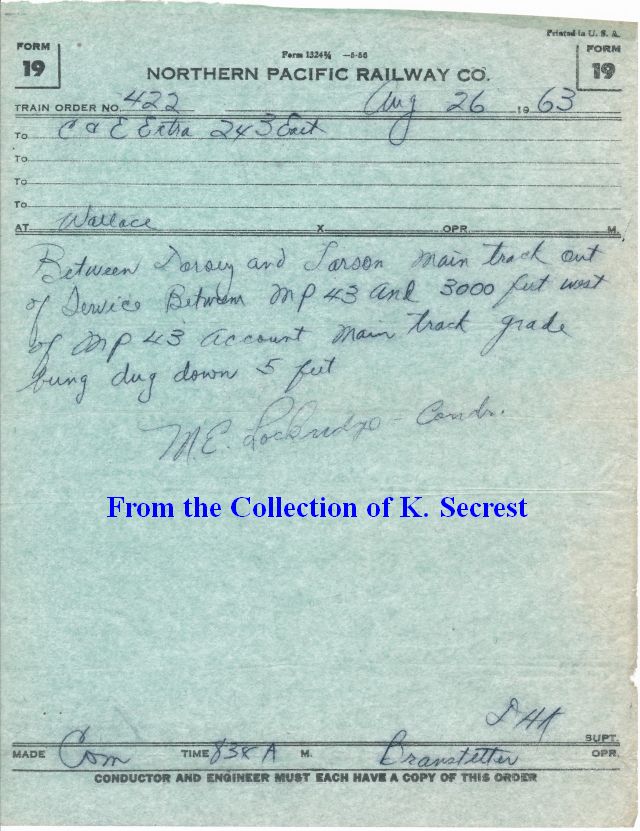 Printed in U. S. A.
FORM 19
Form 1324¾ —5-56
FORM 19
NORTHERN PACIFIC RAILWAY CO.
TRAIN ORDER NO. 422 Aug 26 1963
To C & E Extra 243 East
To
To
To
AT Wallace X OPR. M.
Between Dorsey and Larson Main track out
of Service Between MP 43 and 3000 feet west
of MP 43 Account Main track grade
being dug down 5 feet
M.E. Lockridge - Condr.
From the Collection of K. Secrest
SUPT.
MADE Com TIME 838 A M. Branstetter OPR.
CONDUCTOR AND ENGINEER MUST EACH HAVE A COPY OF THIS ORDER